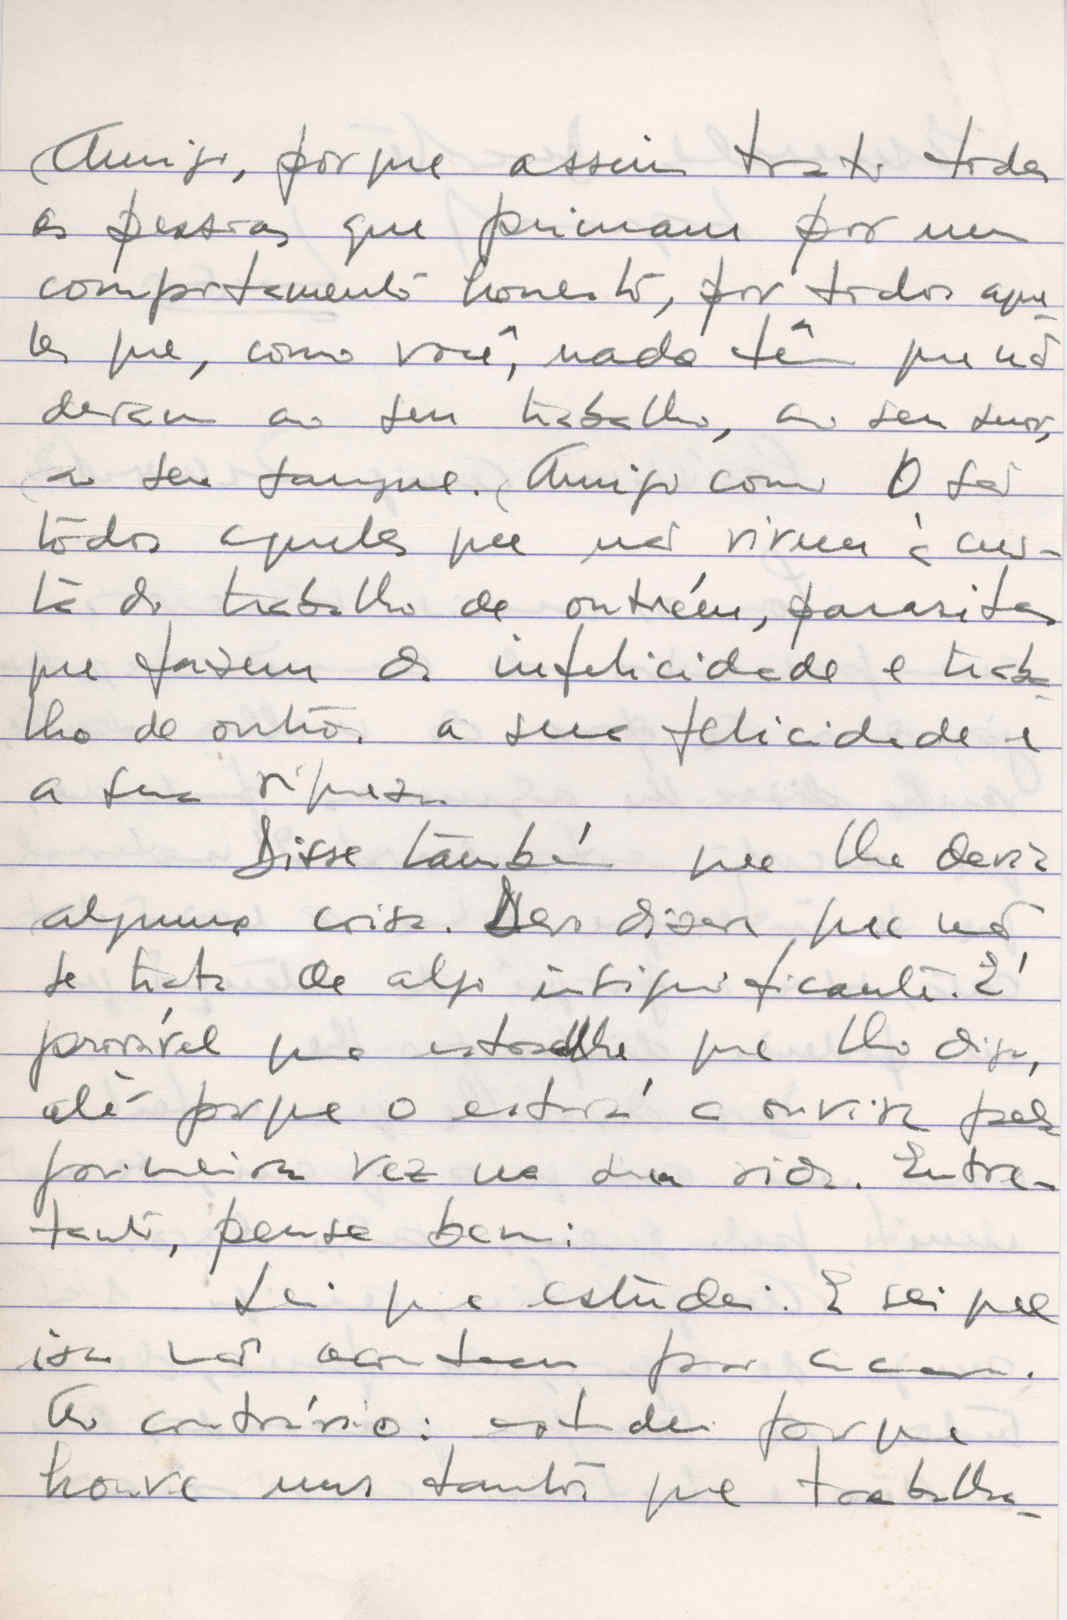 Amigo, porque assim trato todas
as pessoas que primam por um
comportamento honesto, por todos aque-
les que, como você, nada têm que não
devam ao seu trabalho, ao seu suor,
ao seu sangue. Amigo como O são
todos aqueles que não vivem à cus-
ta do trabalho de outrém, parasitas
que fazem da infelicidade e traba-
lho de outros a sua felicidade e
a sua riqueza.
Disse também que lhe devia
alguma coisa. Devo dizer que não
se trata de algo insignificante. É
provável que estranhe que lho diga,
até porque o estará a ouvir pela
primeira vez na sua vida. Entre-
tanto, pense bem:
Sei que estudei. E sei que
isso não aconteceu por acaso.
Ao contrário: estudei porque
houve uns tantos que trabalha-